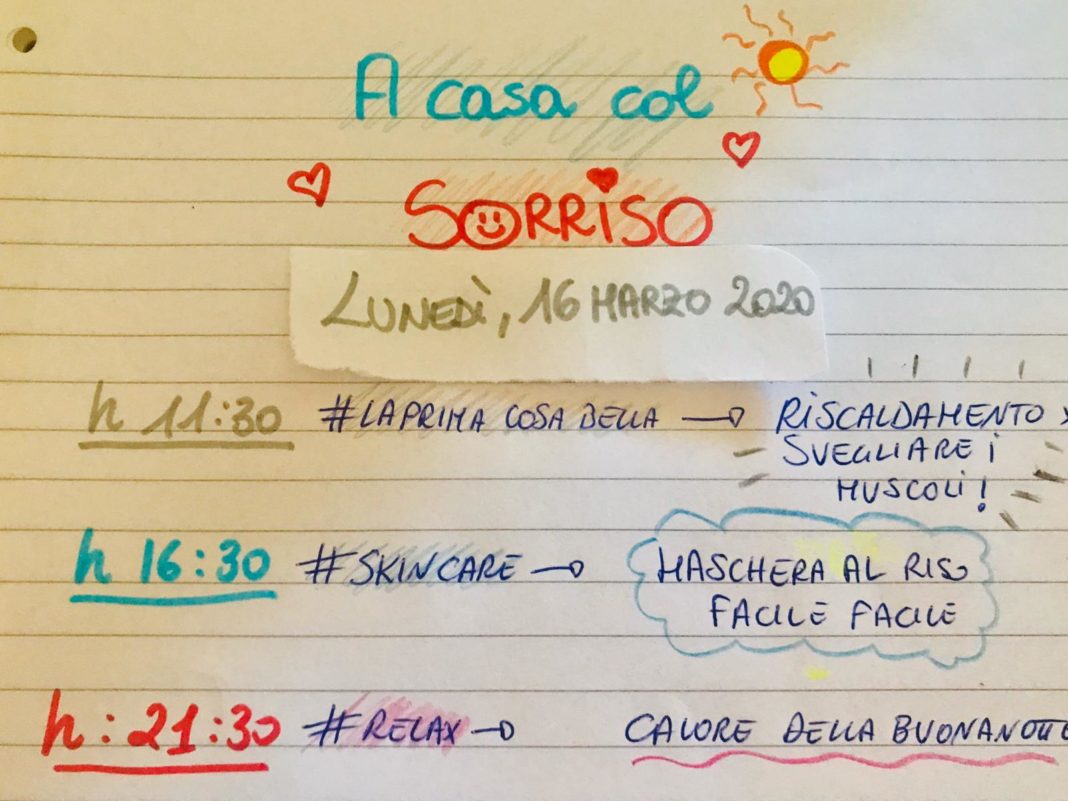 A casa col
SORRiSO
LUNEDÌ, 16 MARZO 2020
h 11:30 #LAPRIMA COSA BELLA → RiSCALDAMENTO x
SVEGLIARE i
MUSCOLi!
h 16:30 #SKINCARE → MASCHERA AL RISO
FACILE FACILE
h: 21:30 #RELAX → CALORE DELLA BUONANOTTE